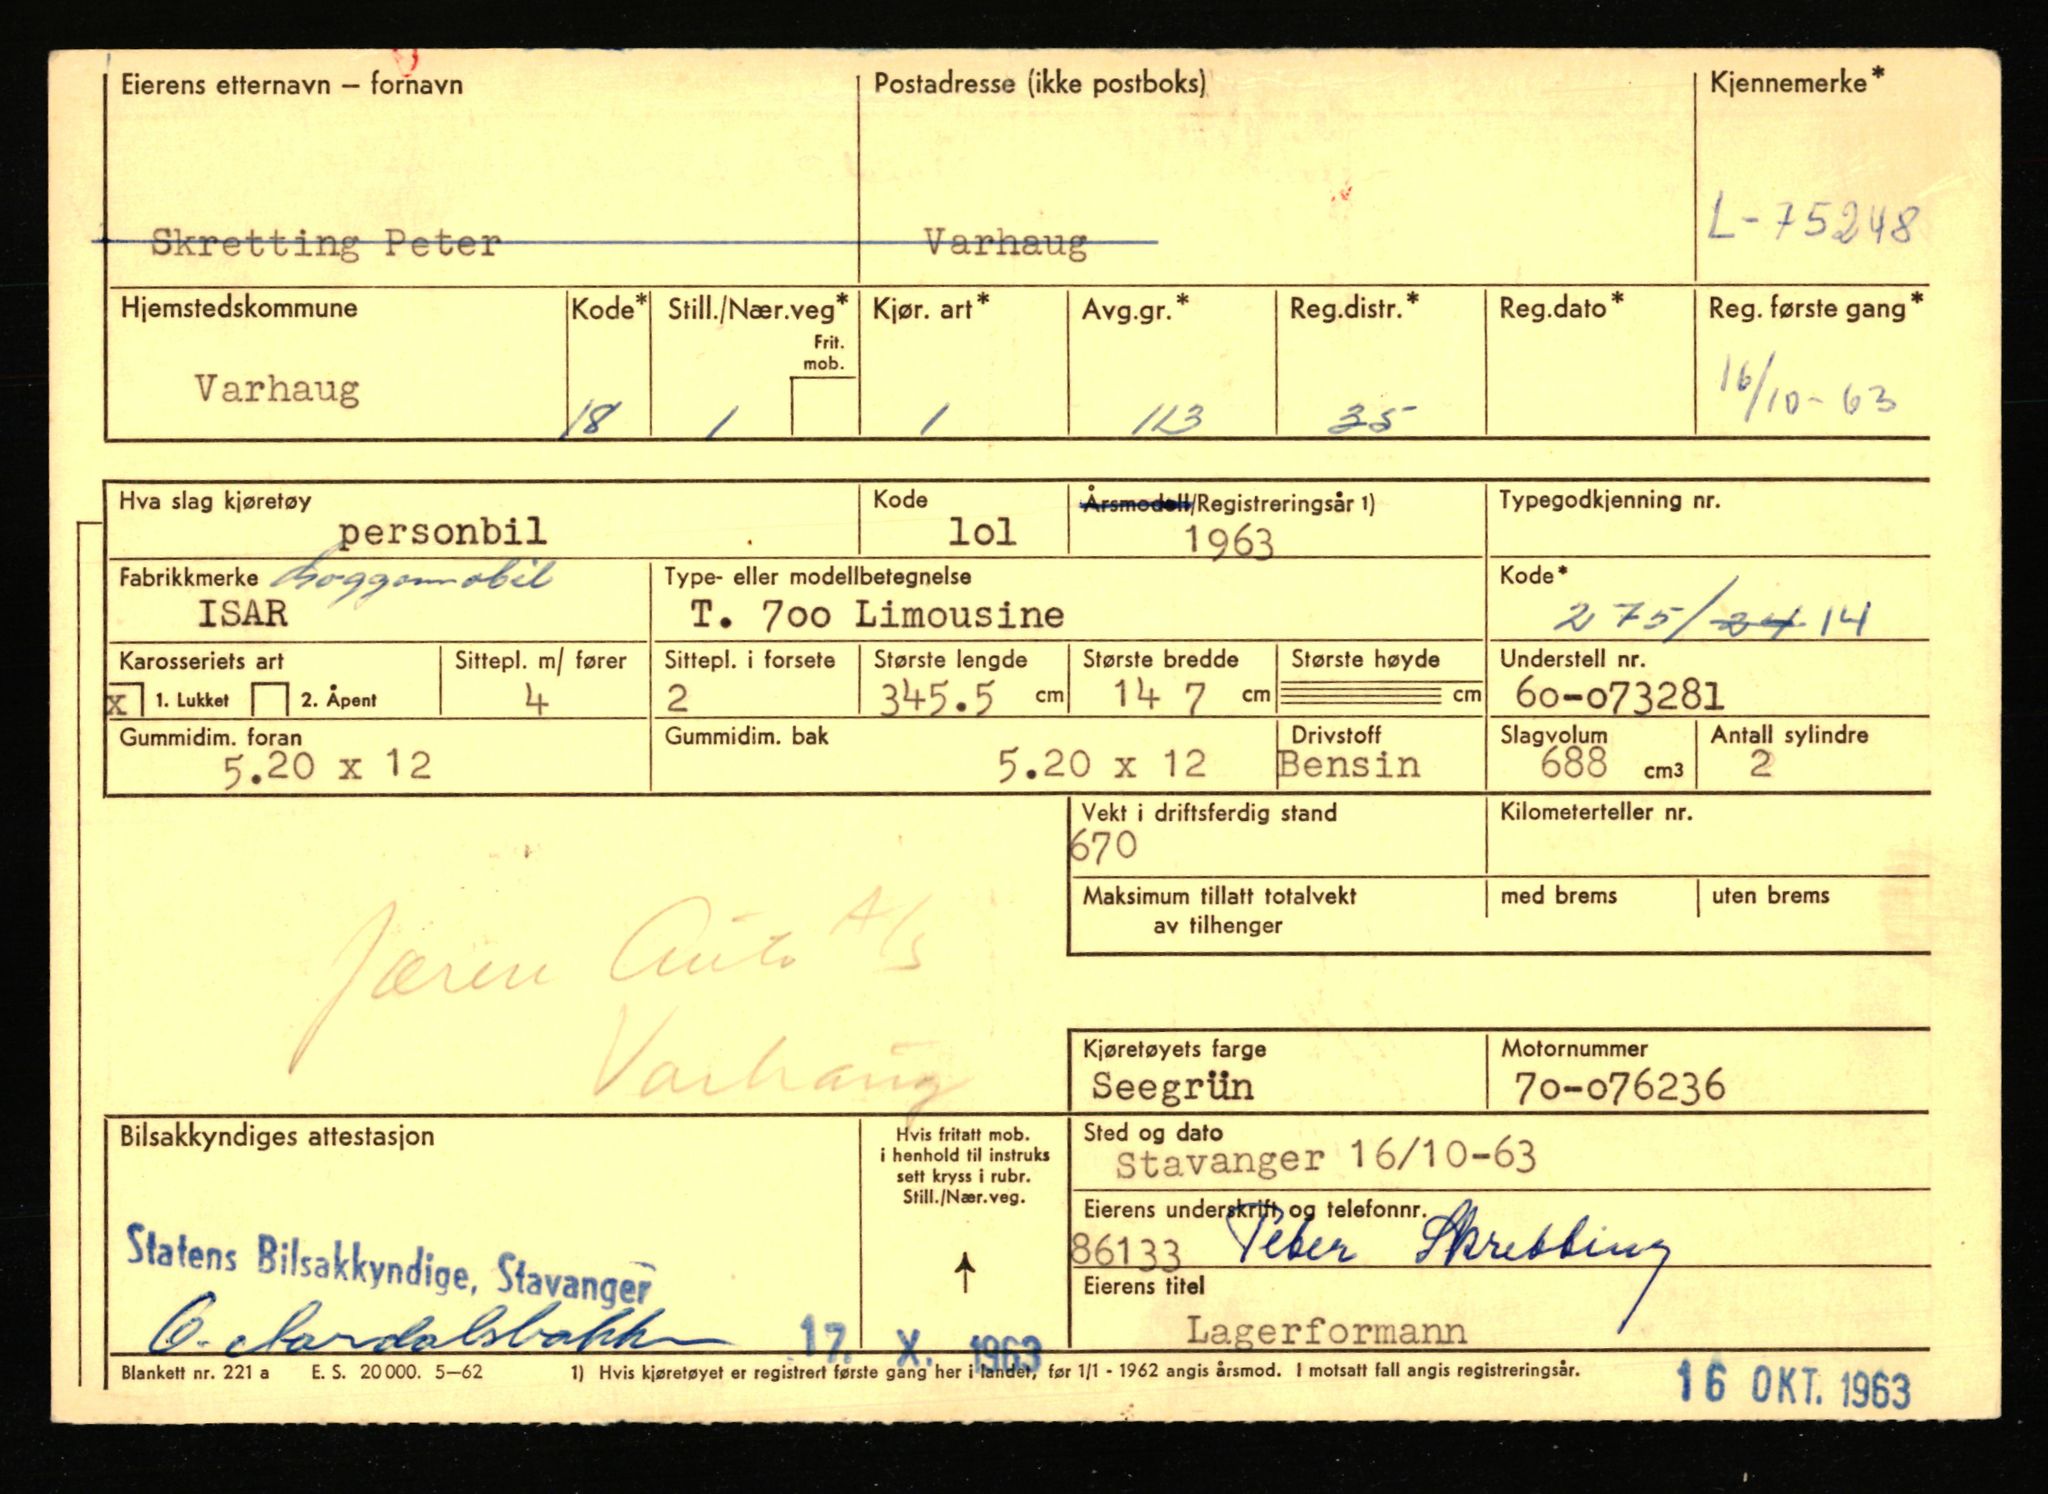 Eierens etternavn – fornavn Postadresse (ikke postboks) Kjennemerke*
L-75248
Skretting Peter Varhaug
Hjemstedskommune Kode* Still./Nær.veg* Kjør. art* Avg.gr.* Reg.distr.* Reg.dato* Reg. første gang*
Frit.
mob.
Varhaug 18 1 1 113 35 16/10-63
Hva slag kjøretøy Kode Årsmodell/Registreringsår 1) Typegodkjenning nr.
personbil lol 1963
Fabrikkmerke Goggomobil Type- eller modellbetegnelse Kode*
ISAR T. 7oo Limousine 275/24 14
Karosseriets art Sittepl. m/ fører Sittepl. i forsete Største lengde Største bredde Største høyde Understell nr.
x 1. Lukket 2. Åpent 4 2 345.5 cm 14 7 cm cm 6o-o73281
Gummidim. foran Gummidim. bak Drivstoff Slagvolum Antall sylindre
5.20 x 12 5.20 x 12 Bensin 688 cm3 2
Vekt i driftsferdig stand Kilometerteller nr.
670
Maksimum tillatt totalvekt med brems uten brems
av tilhenger
Jæren Auto A/S
Varhaug
Kjøretøyets farge Motornummer
Seegrün 7o-o76236
Bilsakkyndiges attestasjon
Hvis fritatt mob.
i henhold til instruks
sett kryss i rubr.
Still./Nær.veg.
Sted og dato
Stavanger 16/10-63
Eierens underskrift og telefonnr.
86133 Peter Skretting
Statens Bilsakkyndige, Stavanger
Eierens titel
Lagerformann
17. X. 1963
Blankett nr. 221 a E. S. 20 000. 5–62 1) Hvis kjøretøyet er registrert første gang her i landet, før 1/1 - 1962 angis årsmod. I motsatt fall angis registreringsår.
16 OKT. 1963